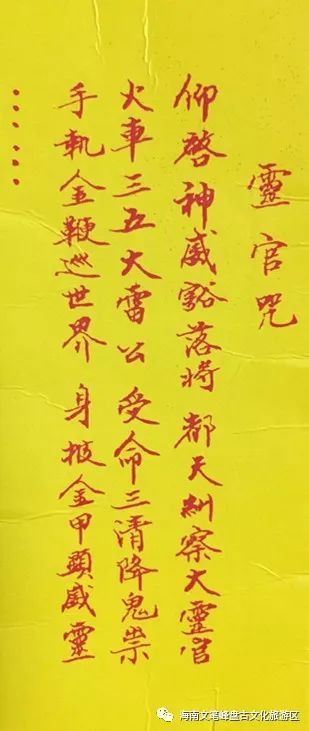 靈官咒
仰啓神威豁落將 都天糾察大靈官
火車三五大雷公 受命三清降鬼祟
手執金鞭巡世界 身披金甲顯威靈
......
海南文笔峰盘古文化旅游区